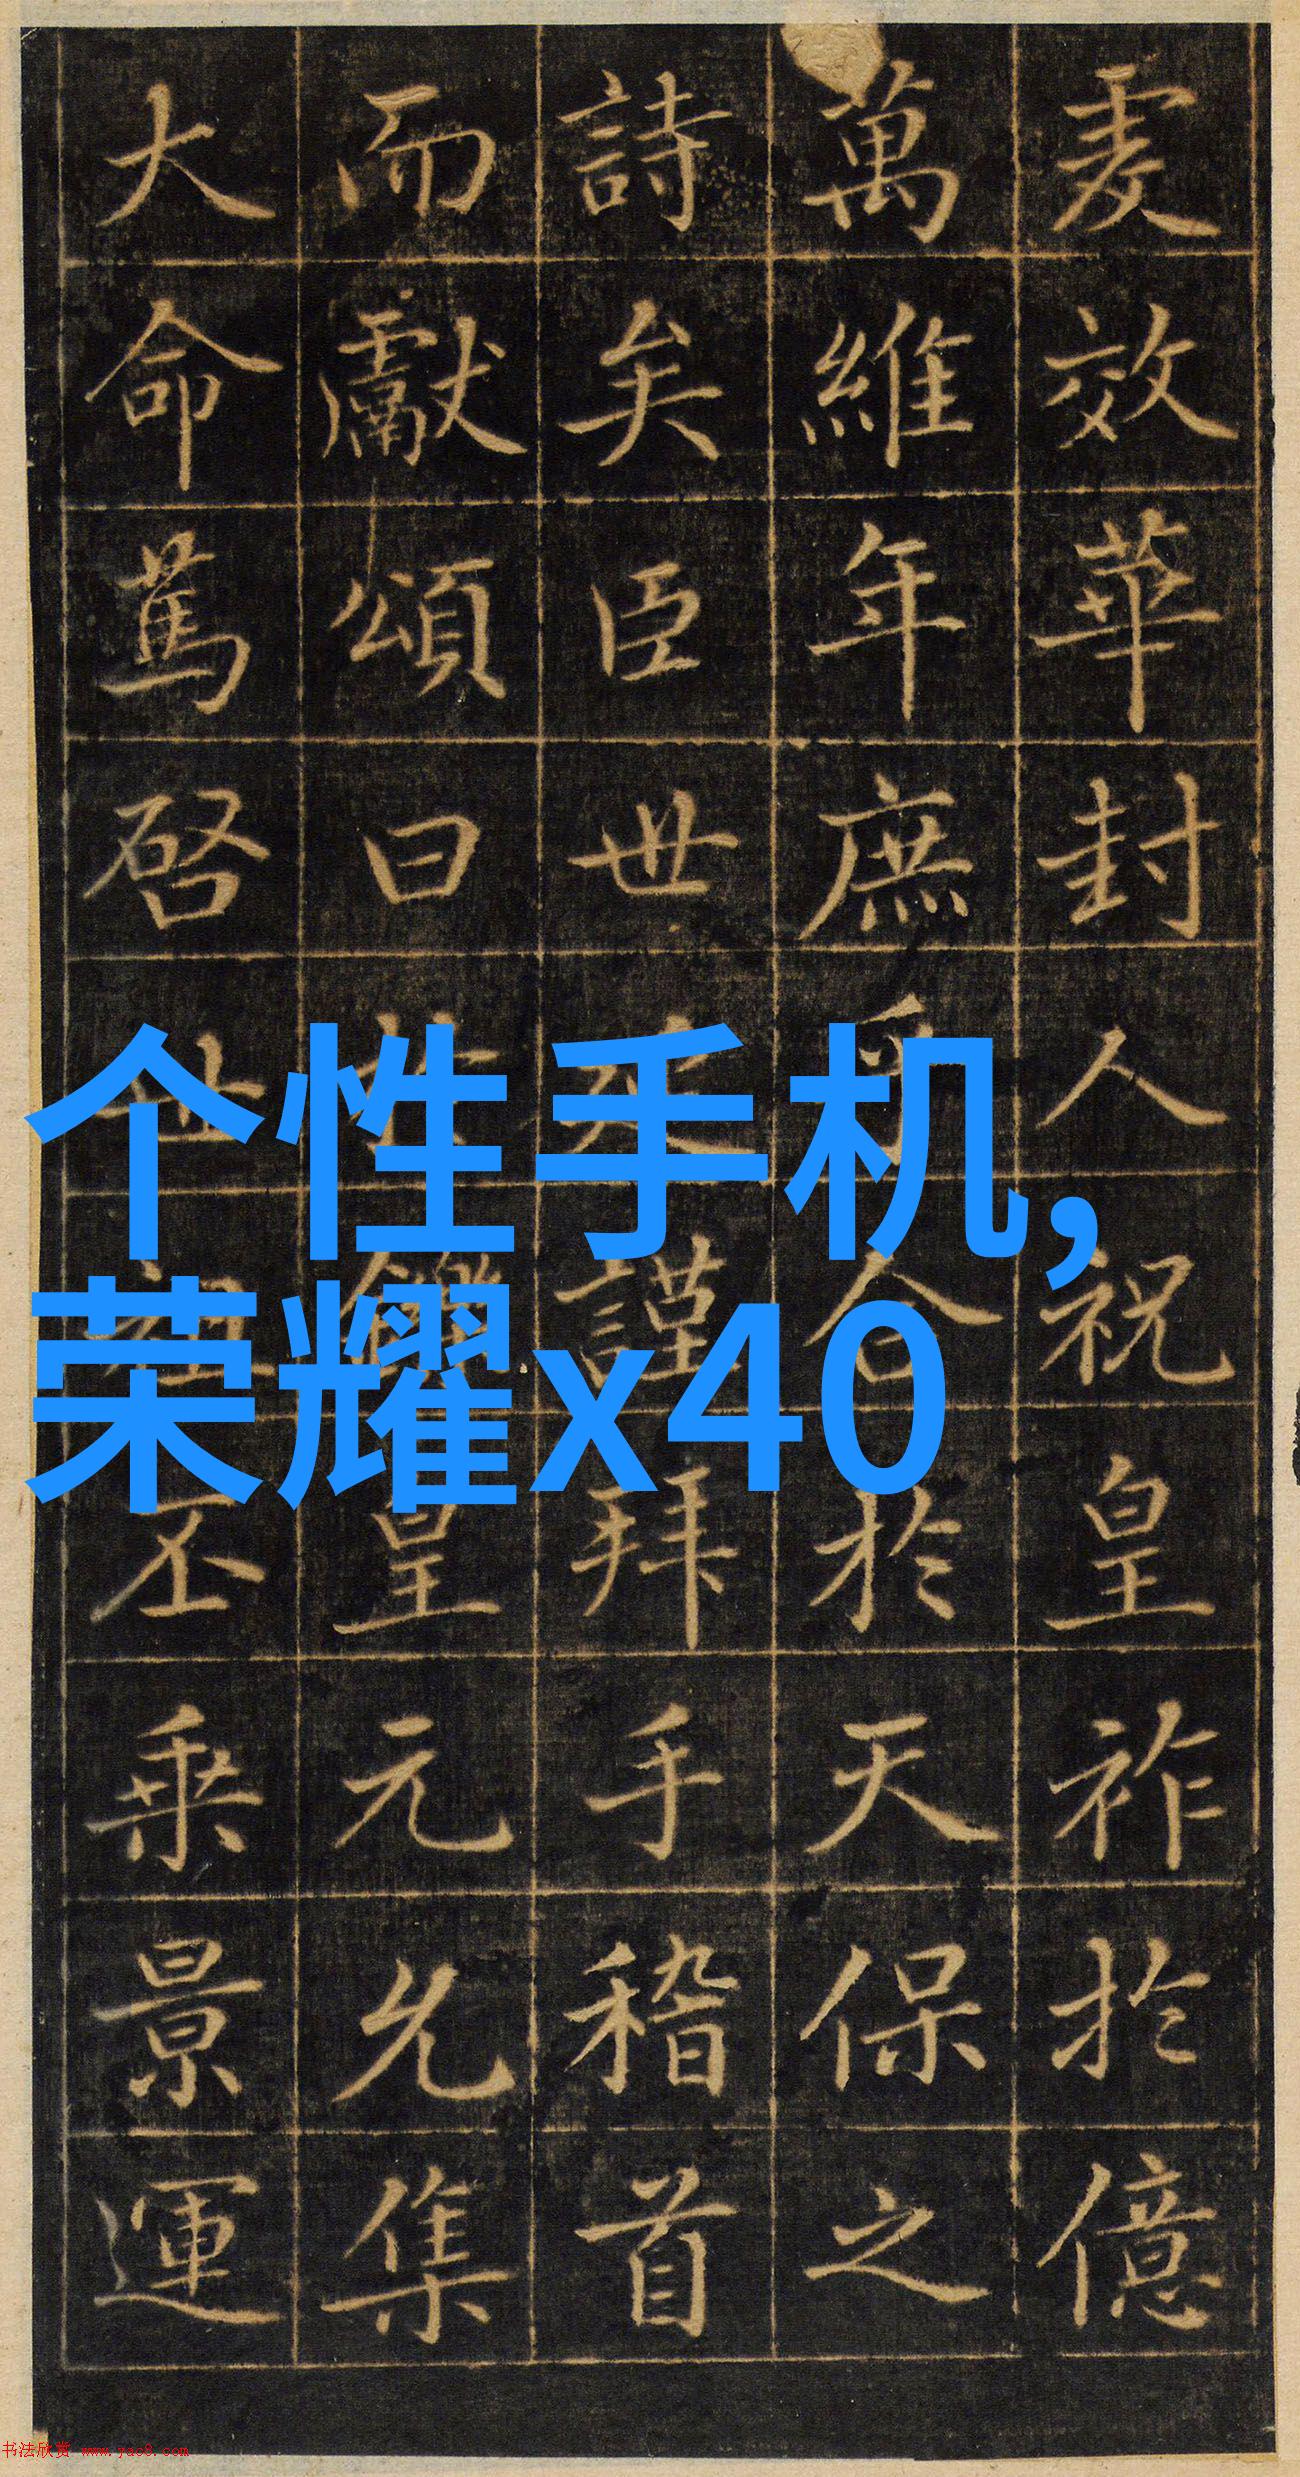 爰效華封人祝皇祚於億
萬維年庶乎合於天保之
詩矣臣世延謹拜手稽首
而獻頌曰於鑠皇元允集
大命篤啓世祖丕乘景運
个性手机,
荣耀x40
书法欣赏 www.yac8.com